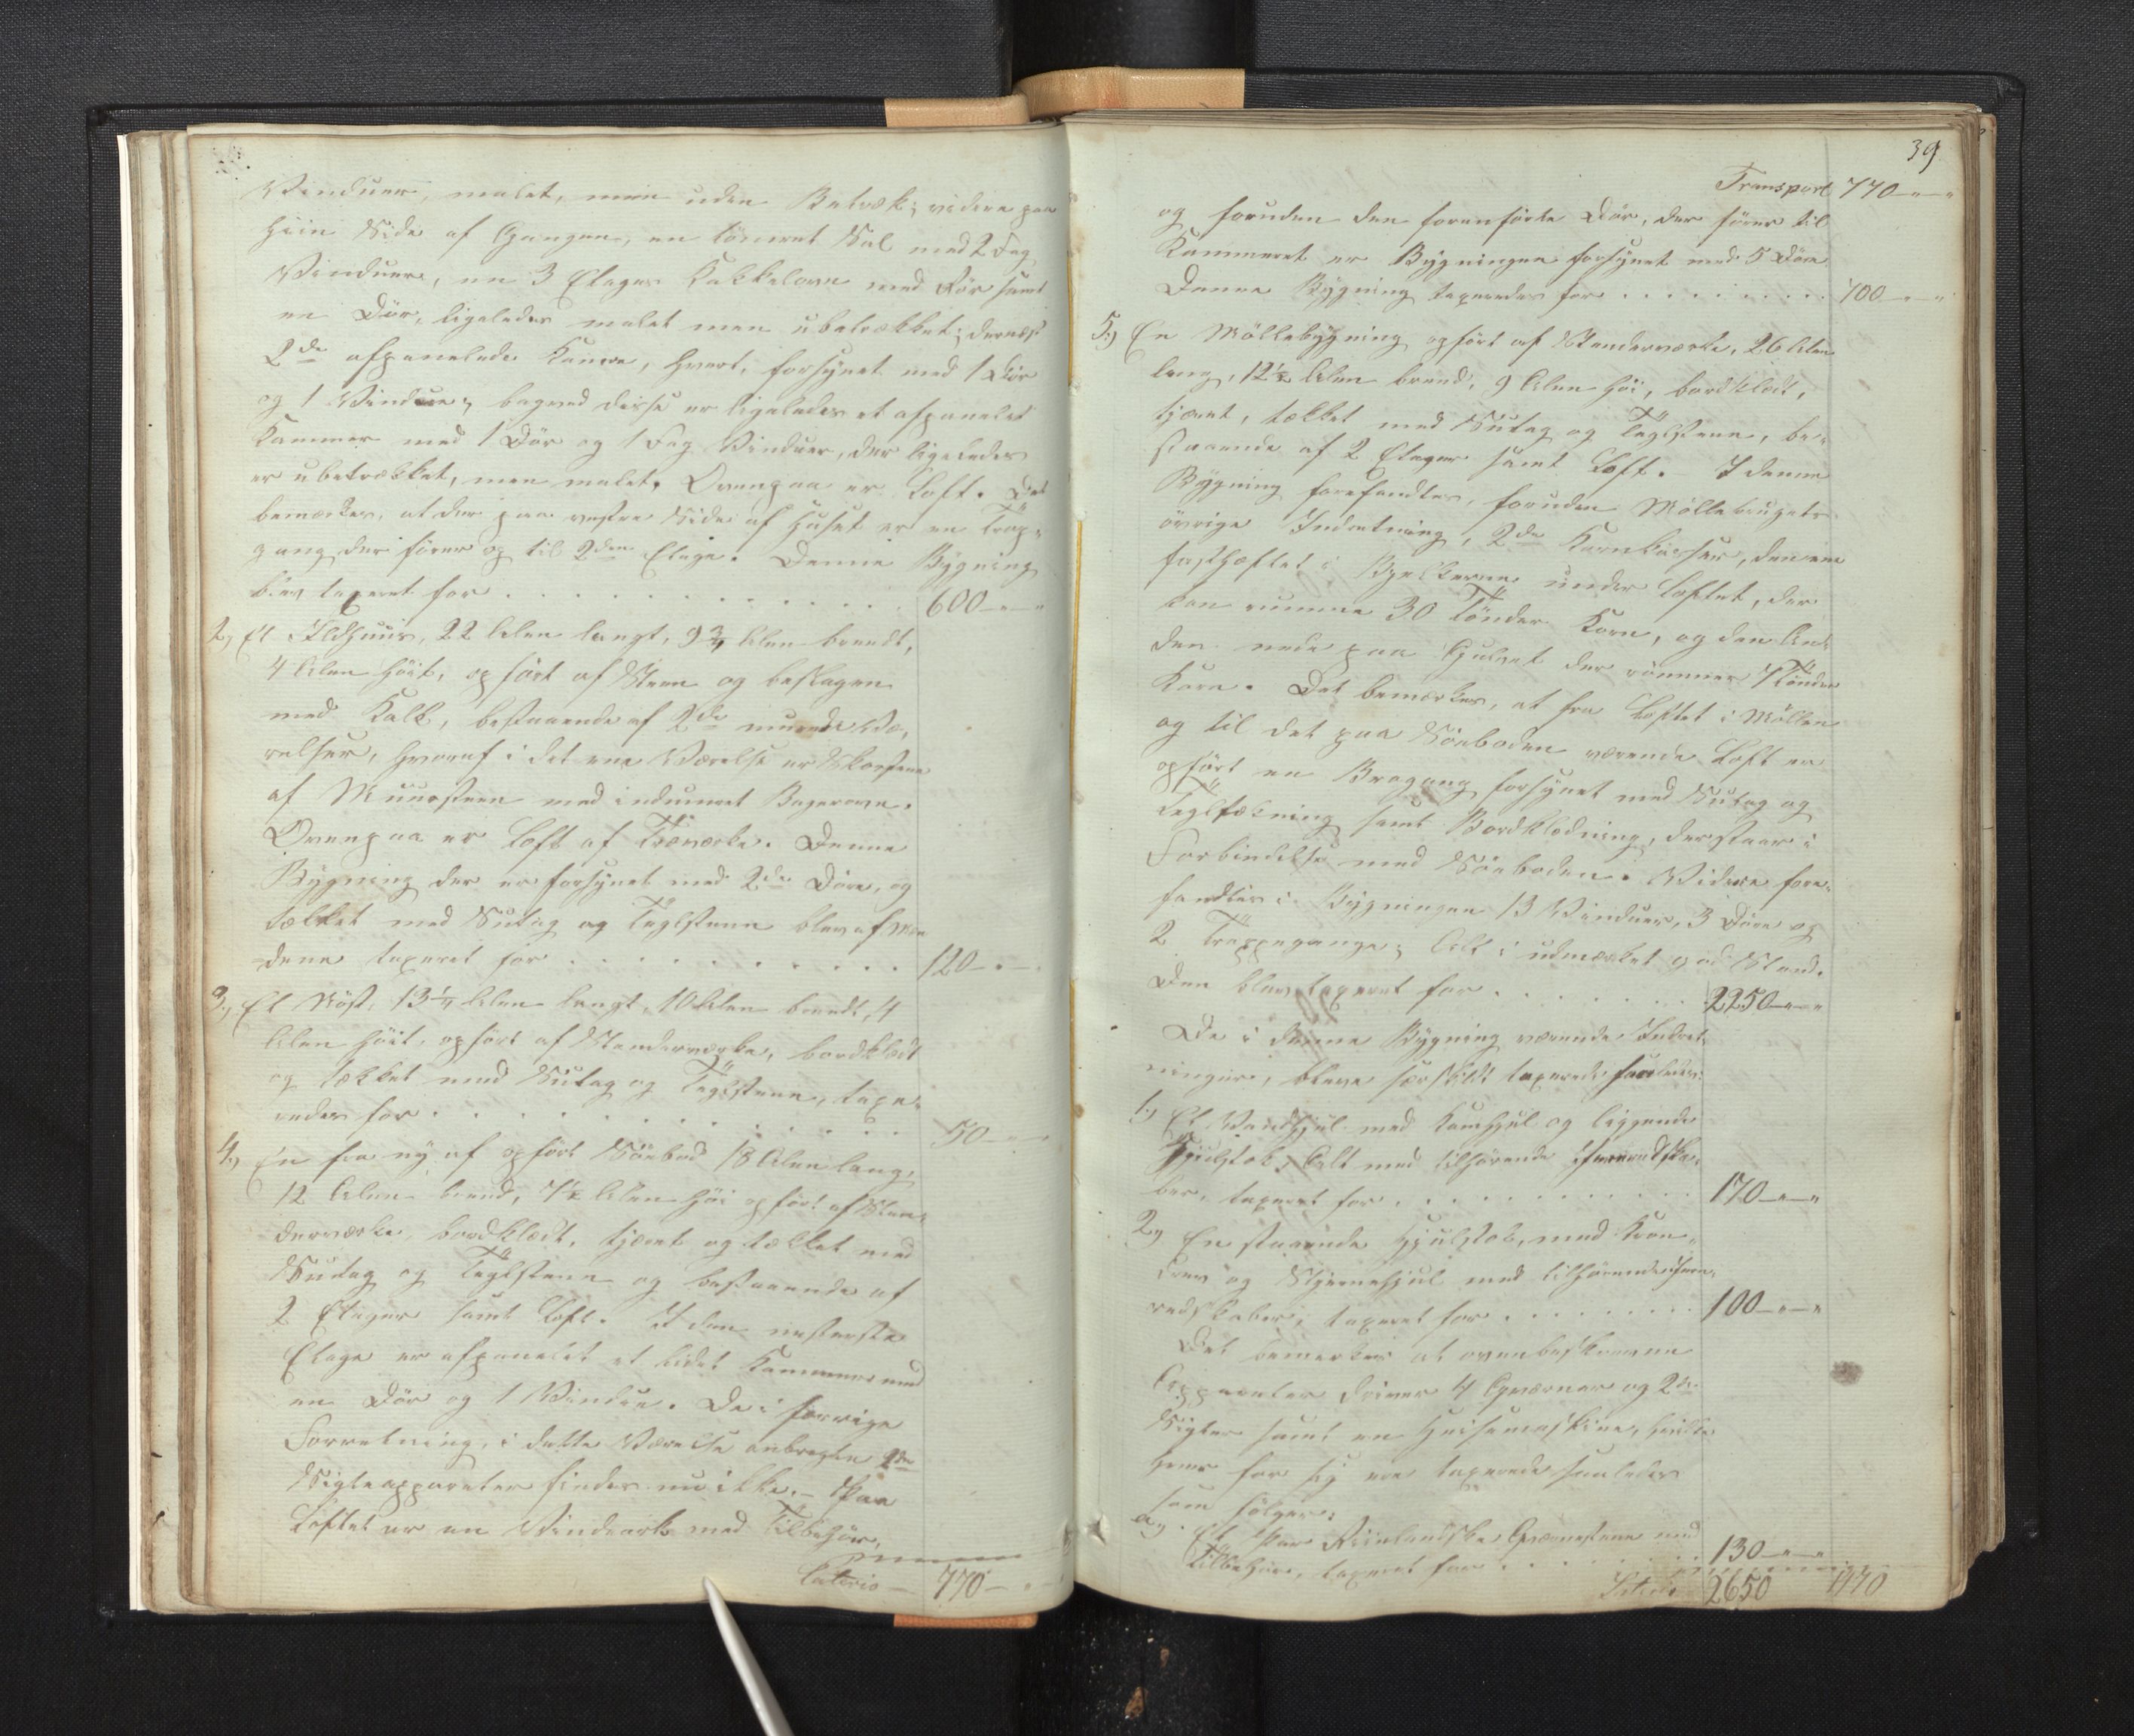 Vinduer, malet, men uden Betræk; videre paa
hiin Side af Gangen, en tømret Sal med 2 Fag
Vinduer, en 3 Etages Kakkelovn med Rör samt
en Dör, ligeledes malet men ubetrækket; dernæst
2de afpanelede Kamre, hvert, forsynet med 1 Dör
og 1 Vindue; bagved disse er ligeledes et afpanelet
Kammer med 1 Dör og 1 Fag Vinduer, der ligeledes
er ubetrækket, men malet. Ovenpaa er Loft. Det
bemærkes, at der paa vestre Side af Huset er en Trap-
gang der förer op til 2den Etage. Denne Bygning
blev taxeret for . . . . . . . . . . . . 600 - " - "
2) Et Ildhuus, 22 Alen langt, 9 3/4 Alen bredt,
4 Alen höit, opfört af Steen og beslagen
med Kalk, bestaaende af 2de murede Væ-
relser, hvoraf i det ene Værelse er Skorsteen
af Muursteen med indmuret Bagerovn.
Ovenpaa er Loft af Træværke. Denne
Bygning der er forsynet med 2de Döre, og
tækket med Sutag og Teglsteen blev af Mæn
dene taxeret for . . . . . . . . . . . 120 - " -
3) Et Nöst, 13 1/4 Alen langt, 10 Alen bredt, 4
Alen höit, opfört af Stenderværke, bordklædt
og tækket med Sutag og Teglsteen, taxe-
redes for . . . . . . . . . . . . 50 - " -
4) En fra ny af opfört Söebod 18 Alen lang,
12 Alen breed, 7 1/2 Alen höi opfört af Sten-
derværke, bordklædt, tjæret og tækket med
Sutag og Teglsteen og bestaaende af
2 Etager samt Loft. I den nesterste
Etage er afpanelet et lidet Kammer med
en Dör og 1 Vindue. De i forrige
Forretning, i dette Værelse anbragte 2de
Sigteapparater findes nu ikke. - Paa
Loftet er en Vindeark med Tilbehör,
Lateris - 770 - "
39
Transport 770 - " - "
og foruden den forenförte Dör, der förer til
Kammeret er Bygningen forsynet med 5 Döre.
Denne Bygning taxeredes for . . . . . . . . 700 - " - "
5) En Möllebygning opfört af Stenderværke, 26 Alen
lang, 12 1/2 Alen breed, 9 Alen höi, bordklædt,
tjæret, tækket med Sutag og Teglsteen, be-
staaende af 2 Etager samt Loft. I denne
Bygning forefandtes, foruden Möllebrugets
övrige Indretning, 2de Kornkasser, den ene
fasthæftet i Bjelkerne under Loftet, der
kan rumme 30 Tönder Korn, og den An-
den nede paa Gulvet der römmer 7 Tönder
Korn. Det bemærkes, at fra Loftet i Möllen
og til det paa Söeboden værende Loft er
opfört en Brogang forsynet med Sutag og
Tegltækning samt Bordklædning, der staar i
Forbindelse med Söeboden. Videre fore-
fandtes i Bygningen 13 Vinduer, 3 Döre og
2 Trappegange; Alt i udmærket god Stand.
Den blev taxeret for . . . . . . . 2250 - " - "
De i denne Bygning værende Indret-
ninger, bleve særskildt taxerede saaledes:
1) Et Vandhjul med Kamhjul og liggende
Hjulstok, Alt med tilhörende Jernredska-
ber, taxeret for . . . . . . . . . . . 170 - " - "
2) En staaende Hjulstok, med Kron-
drev og Stjernehjul med tilhörende Jern-
redskaber, taxeret for . . . . . . . . 100 - " - "
Det bemærkes at ovenbeskrevne
Apparater driver 4 Qværner og 2de
Sigter samt en Heisemaskine, hvilke
hver for sig ere taxerede saaledes
som fölger:
a) Et Par Riinlandske Qværnstene med
Tilbehör, taxeret for . . . . . . . . 130 - " - "
Lateris 2650 1470